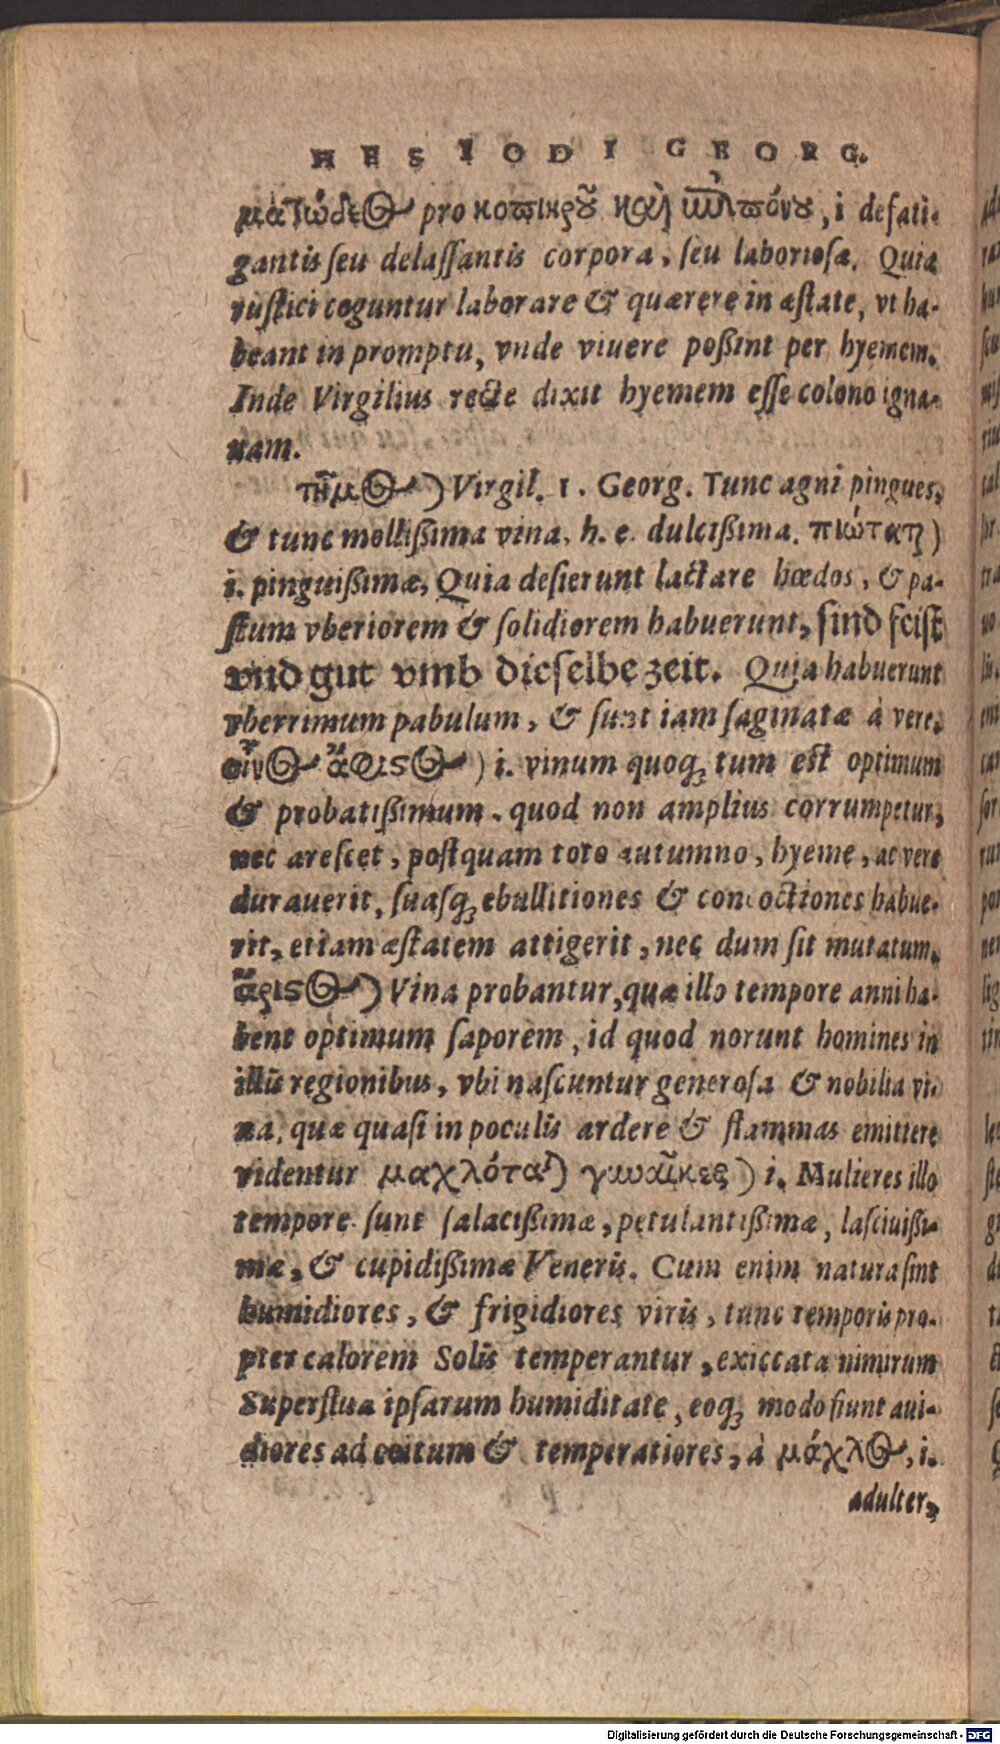 HESIODI GEORG.
ματώδεος pro κοπικροῦ καὶ ἐπιπόνου, i defati-
gantis seu delassantis corpora, seu laboriosæ. Quia
rustici coguntur laborare & quærere in æstate, vt ha-
beant in promptu, vnde viuere poßint per hyemem.
Inde Virgilius recte dixit hyemem esse colono igna-
uam.
τῆμος) Virgil. 1. Georg. Tunc agni pingues,
& tunc mollißima vina, h. e. dulcißima. πιόταται)
i. pinguißimæ, Quia desierunt lactare hœdos, & pa-
stum vberiorem & solidiorem habuerunt, sind feist
vnd gut vmb dieselbe zeit. Quia habuerunt
vberrimum pabulum, & sunt iam saginatæ à vere.
οἶνος ἄριστος) i. vinum quoq; tum est optimum
& probatißimum, quod non amplius corrumpetur,
nec arescet, postquam toto autumno, hyeme, ac vere
durauerit, suasq; ebullitiones & concoctiones habue-
rit, etiam æstatem attigerit, nec dum sit mutatum.
ἄριστος) Vina probantur, quæ illo tempore anni ha-
bent optimum saporem, id quod norunt homines in
illis regionibus, vbi nascuntur generosa & nobilia vi-
na, quæ quasi in poculis ardere & flammas emittere
videntur μαχλόται) γυναῖκες) i. Mulieres illo
tempore sunt salacißimæ, petulantißimæ, lasciuißi-
mæ, & cupidißimæ Veneris. Cum enim natura sint
humidiores, & frigidiores viris, tunc temporis pro-
pter calorem Solis temperantur, exiccata nimirum
Superflua ipsarum humiditate, eoq; modo fiunt aui-
diores ad coitum & temperatiores, à μάχλος, i.
adulter,
Digitalisierung gefördert durch die Deutsche Forschungsgemeinschaft - DFG